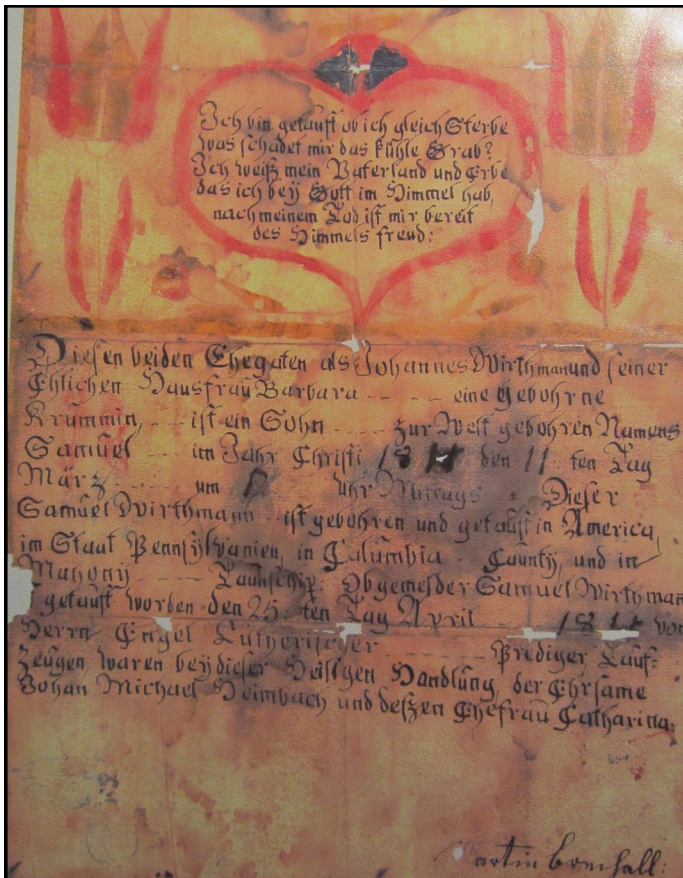 Ich bin getauft ob ich gleich Sterbe
was schadet mir das kühle Grab?
Ich weiß mein Vaterland und Erbe
das ich bey Gott im Himmel hab,
nach meinem Tod ist mir bereit
des Himmels freud:
Diesen beiden Ehegaten als Johannes Wirthman und seiner
Ehlichen Hausfrau Barbara - - - - eine gebohrne
Krummin, - - ist ein Sohn - - - - zur Welt gebohren Namens
Samuel - - - im Jahr Christi den 11. ten Tag
März - - - um Uhr Mittags Dieser
Samuel Wirthmann ist gebohren und getauft in America,
im Staat Pennsylvanien, in Calumbia County, und in
Mahony - - - - Taunschip: Obgemelder Samuel Wirthman
getauft worden den 25. ten Tag April von
Herrn Engel Lutherischer - - - - Prediger Tauf=
Zeugen waren bey dieser Heiligen Handlung, der Ehrsame
Johan Michael Heimbach und deßzen Ehefrau Catharina:
artin